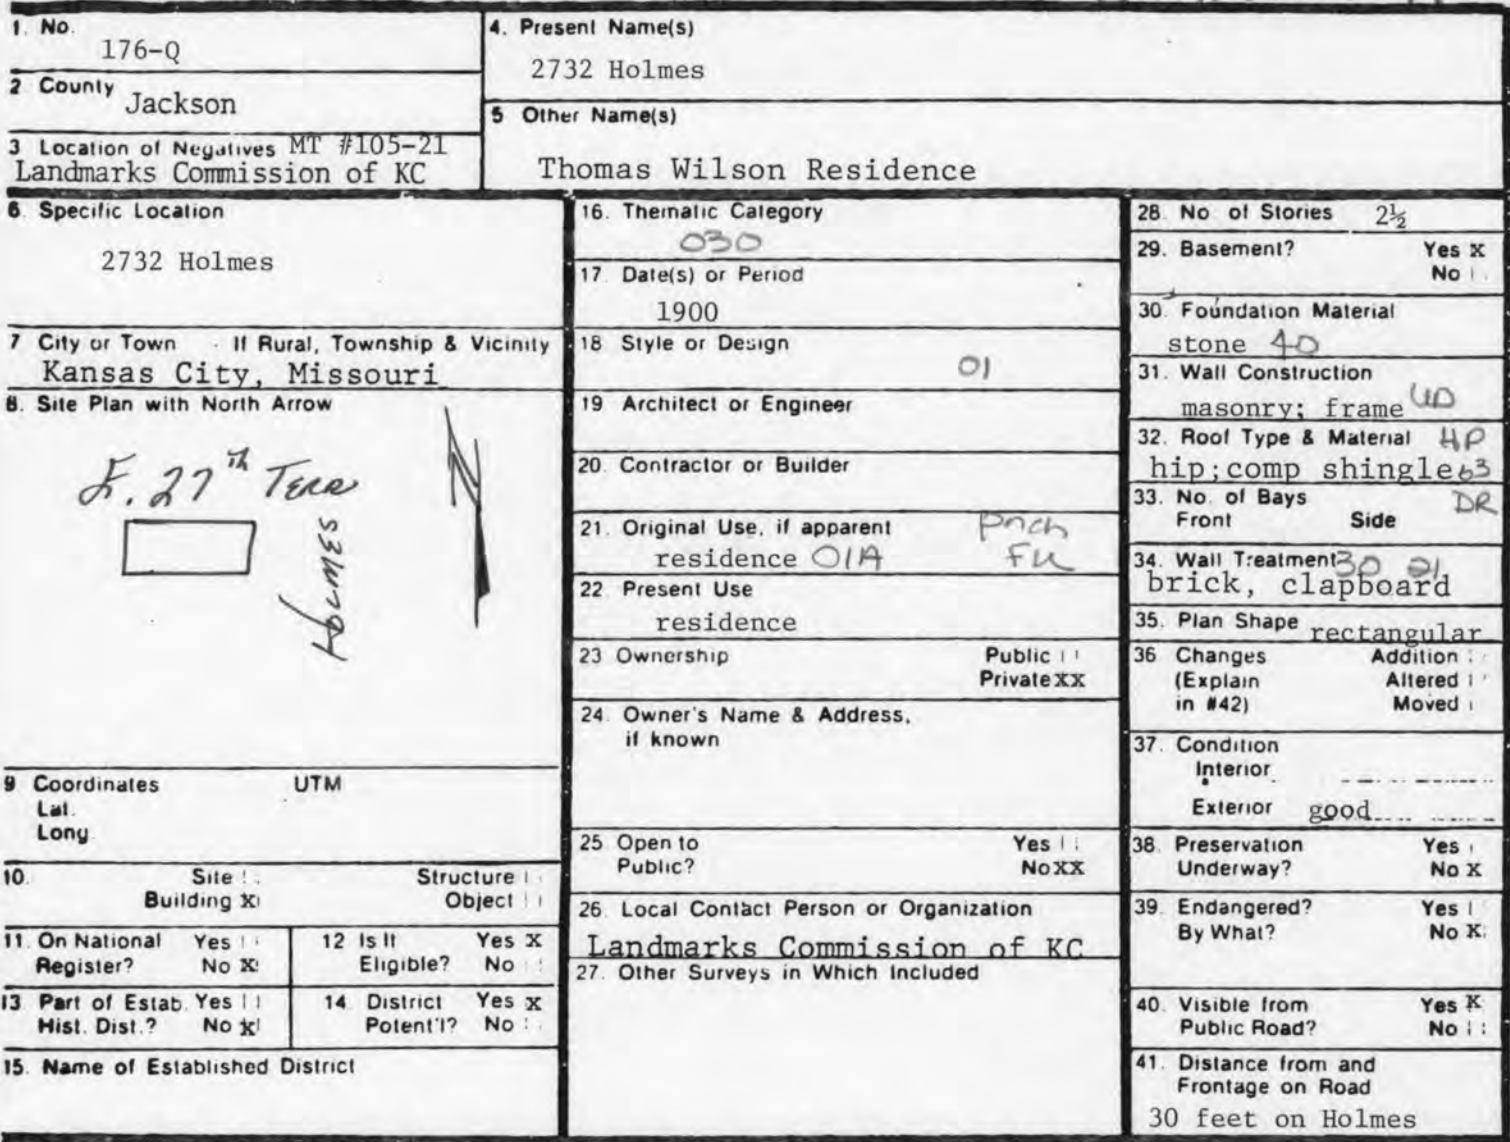 1. No.
176-Q
2 County Jackson
3 Location of Negatives MT #105-21
Landmarks Commission of KC
4. Present Name(s)
2732 Holmes
5 Other Name(s)
Thomas Wilson Residence
6. Specific Location
2732 Holmes
7 City or Town If Rural, Township & Vicinity
Kansas City, Missouri
8. Site Plan with North Arrow
E. 27th Terr
HOLMES
N
9 Coordinates UTM
Lat.
Long.
10. Site Structure
Building X Object
11. On National Yes
Register? No X
12 Is It Yes X
Eligible? No
13 Part of Estab. Yes
Hist. Dist.? No X
14. District Yes X
Potent'l? No
15. Name of Established District
16. Thematic Category
030
17. Date(s) or Period
1900
18 Style or Design
01
19 Architect or Engineer
20. Contractor or Builder
21. Original Use, if apparent
residence 01A
22 Present Use
residence
23 Ownership Public
Private XX
24. Owner's Name & Address,
if known
25 Open to Yes
Public? No XX
26. Local Contact Person or Organization
Landmarks Commission of KC
27. Other Surveys in Which Included
28. No. of Stories 2½
29. Basement? Yes X
No
30. Foundation Material
stone 40
31. Wall Construction
masonry; frame
32. Roof Type & Material HP
hip; comp shingle 63
33. No. of Bays DR
Front Side
34. Wall Treatment 30 21
brick, clapboard
35. Plan Shape rectangular
36 Changes Addition
(Explain Altered
in #42) Moved
37. Condition
Interior
Exterior good
38. Preservation Yes
Underway? No X
39. Endangered? Yes
By What? No X
40. Visible from Yes X
Public Road? No
41. Distance from and
Frontage on Road
30 feet on Holmes